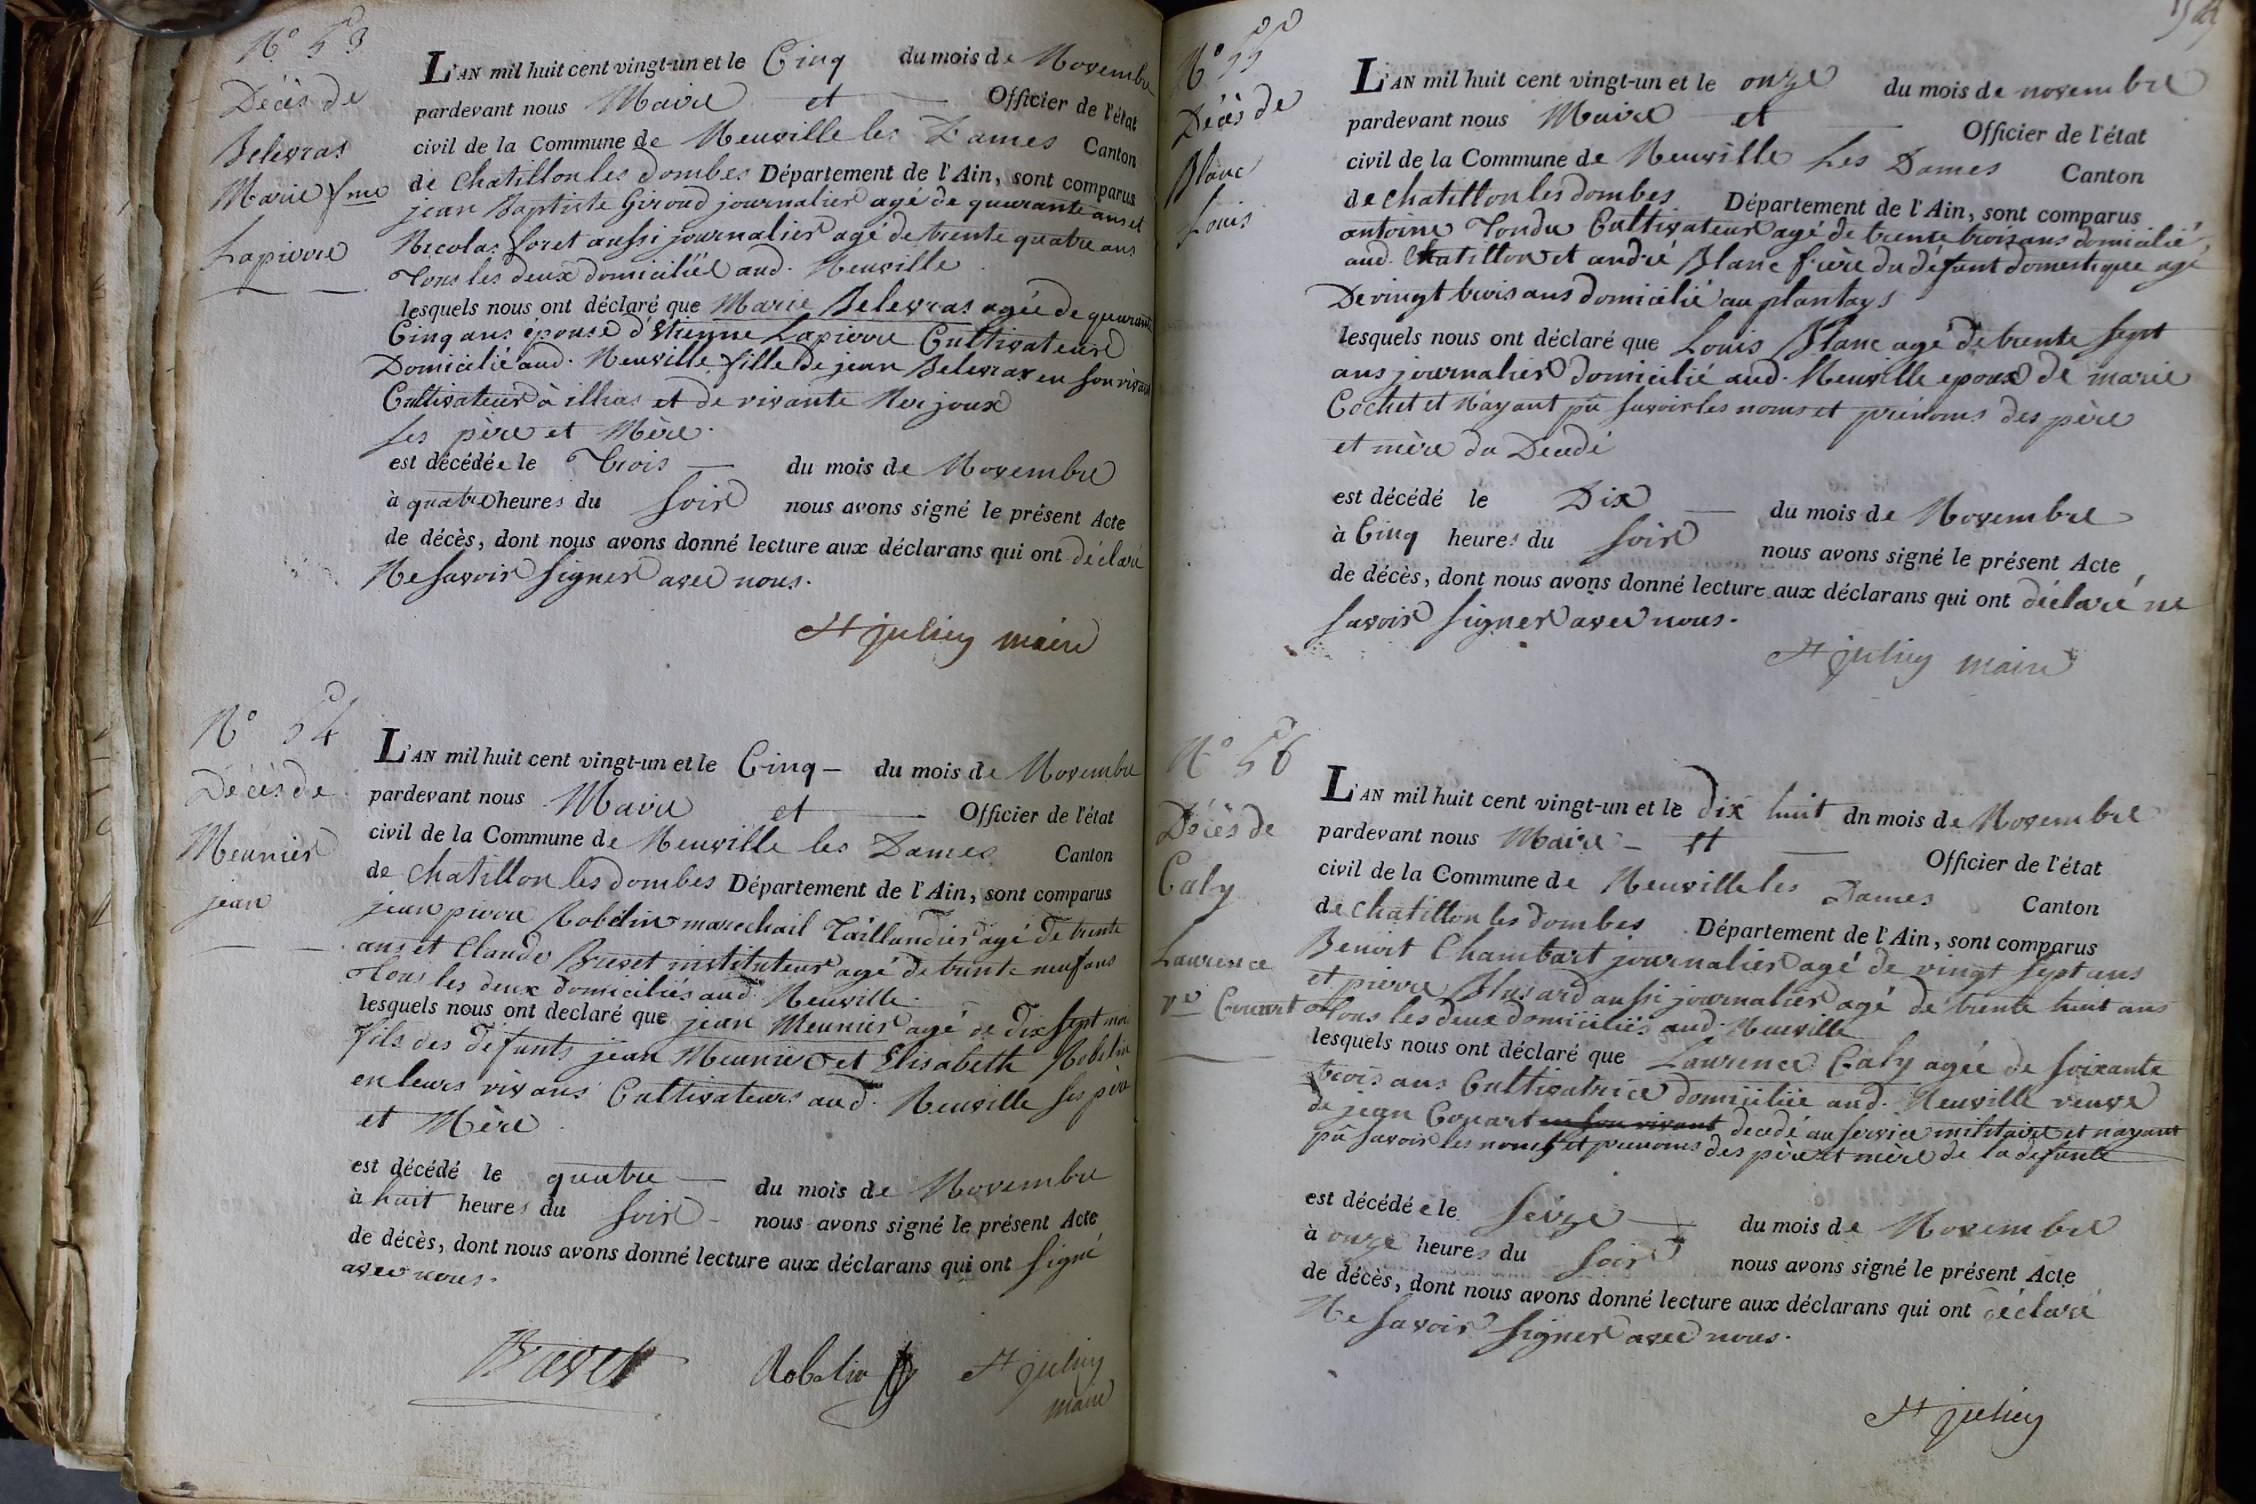 N° 53
Décès de
Belevras
Marie fme
Lapierre
L'AN mil huit cent vingt-un et le Cinq du mois de Novembre
pardevant nous Maire et Officier de l'état
civil de la Commune de Neuville les Dames Canton
de Chatillon les dombes Département de l'Ain, sont comparus
jean Baptiste Giroud journalier agé de quarante ans et
Nicolas foret aussi journalier agé de trente quatre ans
Tous les deux domiciliés aud. Neuville
lesquels nous ont déclaré que Marie Belevras agée de quarante
Cinq ans épouse d'Etienne Lapierre Cultivateur
Domicilié aud. Neuville fille de jean Belevras en son vivant
Cultivateur à illias et de vivante Noijoux
ses père et Mère.
est décédée le Trois du mois de Novembre
à quatre heures du soir nous avons signé le présent Acte
de décès, dont nous avons donné lecture aux déclarans qui ont déclaré
Ne savoir signer avec nous.
St julien maire
N° 54
Décès de
Meunier
jean
L'AN mil huit cent vingt-un et le Cinq du mois de Novembre
pardevant nous Maire et Officier de l'état
civil de la Commune de Neuville les Dames Canton
de Chatillon les dombes Département de l'Ain, sont comparus
jean pierre Robelin marechail Taillandier agé de trente
ans et Claude Brevet instituteur agé de trente neuf ans
Tous les deux domiciliés aud. Neuville.
lesquels nous ont declaré que jean Meunier agé de dix sept mois
fils des défunts jean Meunier et Elisabeth Robelin
en leurs vivans Cultivateurs aud. Neuville ses père
et Mère
est décédé le quatre du mois de Novembre
à huit heures du soir nous avons signé le présent Acte
de décès, dont nous avons donné lecture aux déclarans qui ont signé
avec nous.
Brevet Robelin St julien
maire
N° 55
Décès de
Blanc
Louis
L'AN mil huit cent vingt-un et le onze du mois de novembre
pardevant nous Maire et Officier de l'état
civil de la Commune de Neuville Les Dames Canton
de chatillon les dombes Département de l'Ain, sont comparus
antoine Tondu Cultivateur agé de trente trois ans domicilié
aud. Chatillon et andré Blanc frère du défunt domestique agé
De vingt trois ans domicilié au plantays
lesquels nous ont déclaré que Louis Blanc agé de trente sept
ans journalier domicilié aud. Neuville epoux de marie
Cochet et N'ayant pû savoir les noms et prénoms des père
et mère du Decedé
est décédé le Dix du mois de Novembre
à Cinq heures du soir nous avons signé le présent Acte
de décès, dont nous avons donné lecture aux déclarans qui ont déclaré ne
savoir signer avec nous.
St julien maire
N° 56
Décès de
Caly
Laurence
ve Couart
L'AN mil huit cent vingt-un et le dix huit dn mois de Novembre
pardevant nous Maire et Officier de l'état
civil de la Commune de Neuville les Dames Canton
de Chatillon les dombes Département de l'Ain, sont comparus
Benoit Chambart journalier agé de vingt sept ans
et pierre aussi journalier agé de trente huit ans
Tous les deux domiciliés aud. Neuville
lesquels nous ont déclaré que Laurence Caly agée de soixante
trois ans Cultivatrice domiciliée aud. Neuville veuve
de jean Couart en son vivant decedé au service militaire et n'ayant
pû savoir les noms et prenoms des père et mère de la defunte
est décédée le seize du mois de Novembre
à onze heures du soir nous avons signé le présent Acte
de décès, dont nous avons donné lecture aux déclarans qui ont déclaré
Ne savoir signer avec nous.
St julien